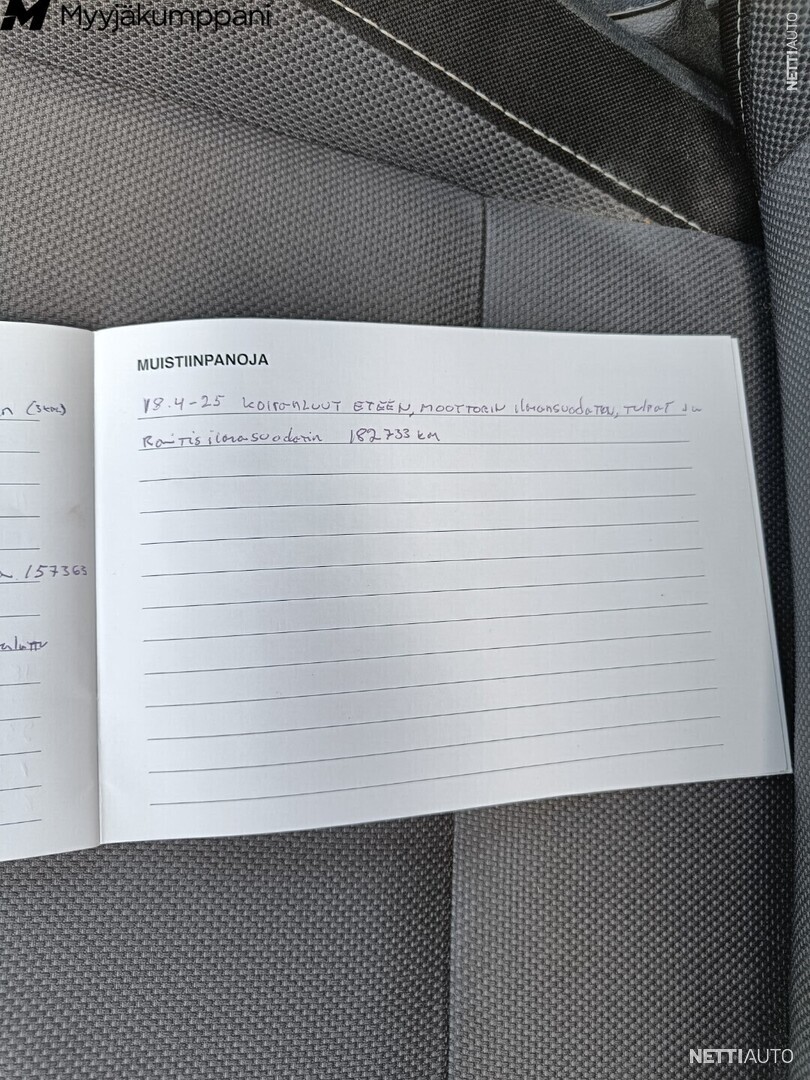 Myyjäkumppani
NETTIAUTO
MUISTIINPANOJA
n (3kpl)
18.4-25 KOIRANLUUT ETEEN, MOOTTORIN ilmansuodatin, TULPAT JA
RAITISilmasuodatin 182733 km
157363
NETTIAUTO